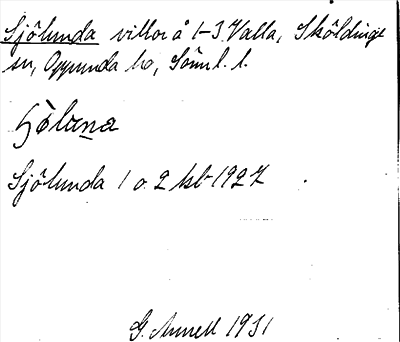 Sjölunda villor å 1-3 Valla, Sköldinge
sn, Oppunda hd, Söml. l.
Sjölunda 1 o. 2 kb 1927
G. Annell 1931